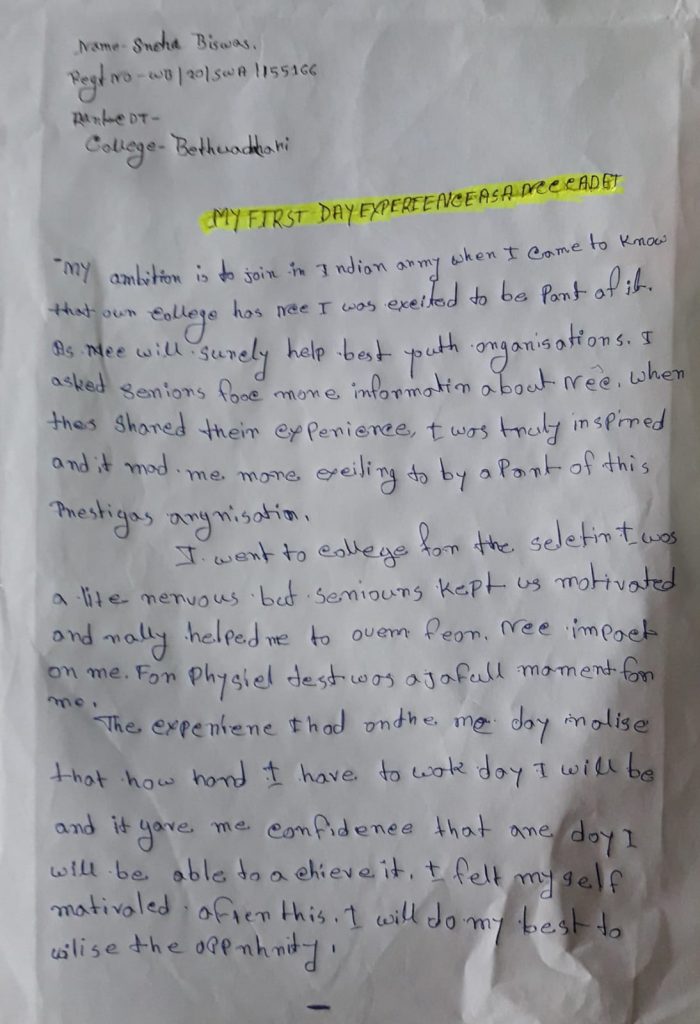 Name- Sneha Biswas.
Regt No - WB/20/SWA/155166
Rank- CDT-
College- Bethuadahari
MY FIRST DAY EXPEREENCE AS A NCC CADET
"My ambition is to join in Indian army when I came to know
that our college has ncc I was excited to be Part of it.
As Ncc will surely help best youth organisations. I
asked seniors fooe more informatin about Ncc. when
thes shared their experience, I was truly inspired
and it mad me more exeiling to by a Part of this
Prestigas argnisation.
I went to college for the seletin I was
a lite nervous but seniours kept us motivated
and rally helped me to overm fear. Ncc impact
on me. For Physiel test was a jafull moment for
me.
The experiene I had on the me day inalise
that how hard I have to work day I will be
and it gave me confidence that one day I
will be able to achieve it. I felt my self
mativaled after this. I will do my best to
wilise the oppnhnity.